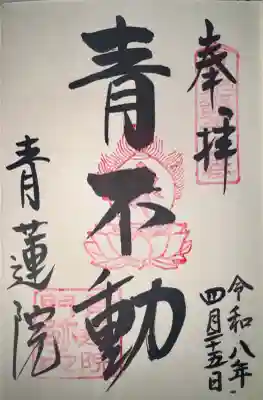 奉拝
青不動
青蓮院
令和八年
四月二十五日